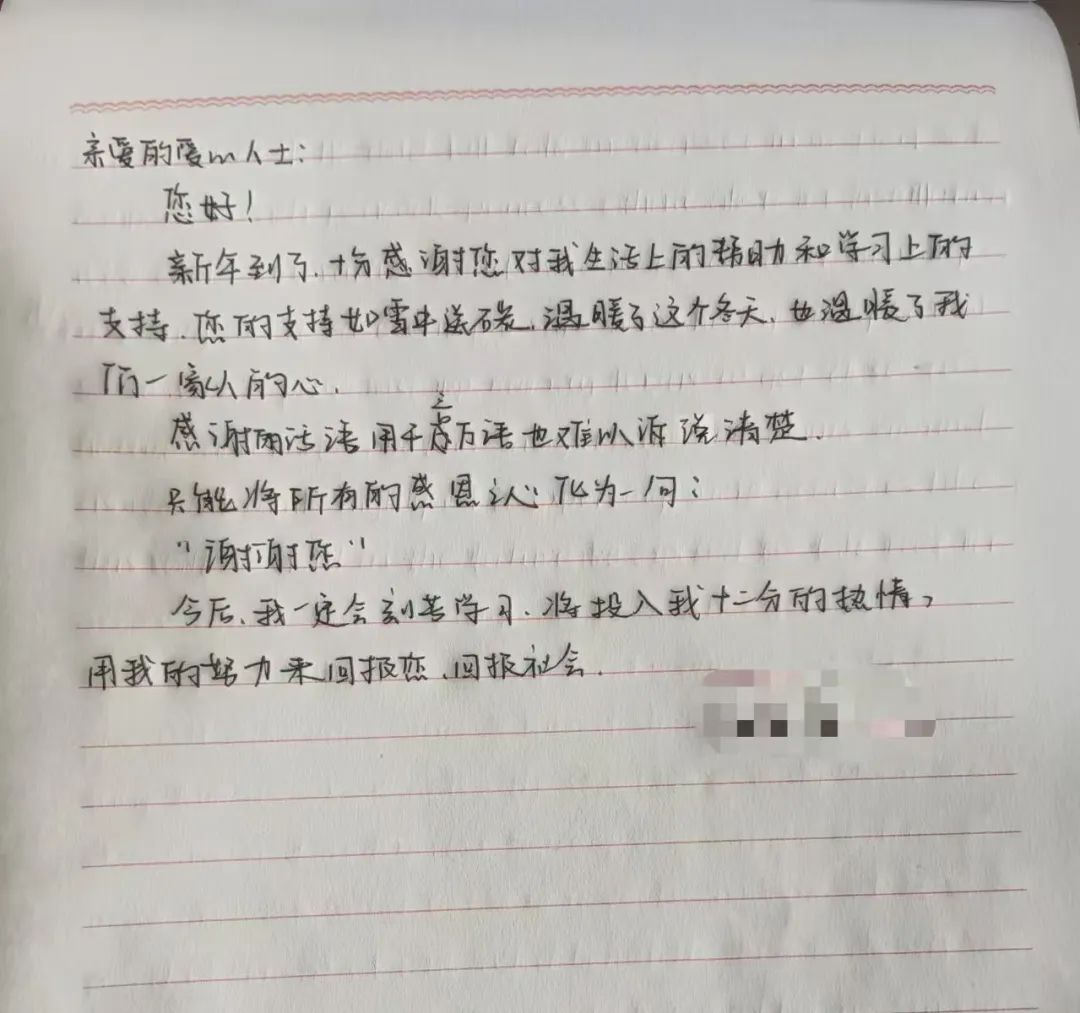 亲爱的爱心人士：
您好！
新年到了，十分感谢您对我生活上的帮助和学习上的
支持，您的支持如雪中送碳，温暖了这个冬天，也温暖了我
们一家人的心.
感谢的话语用千言万语也难以诉说清楚.
只能将所有的感恩之心化为一句：
“谢谢您”
今后，我一定会刻苦学习，将投入我十二分的热情，
用我的努力来回报您，回报社会.